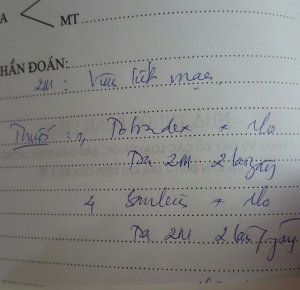 A < MT
HẨN ĐOÁN:
2M: Viêm kết mạc
Thuốc: 1, Tobradex * 1lọ
Tra 2M 2 lần/ngày
4 Sanlein * 1lọ
Tra 2M 2 lần/ngày